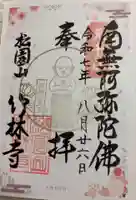 南無阿弥陀佛
令和七年
八月廿六日
奉拝
松園山
竹林寺